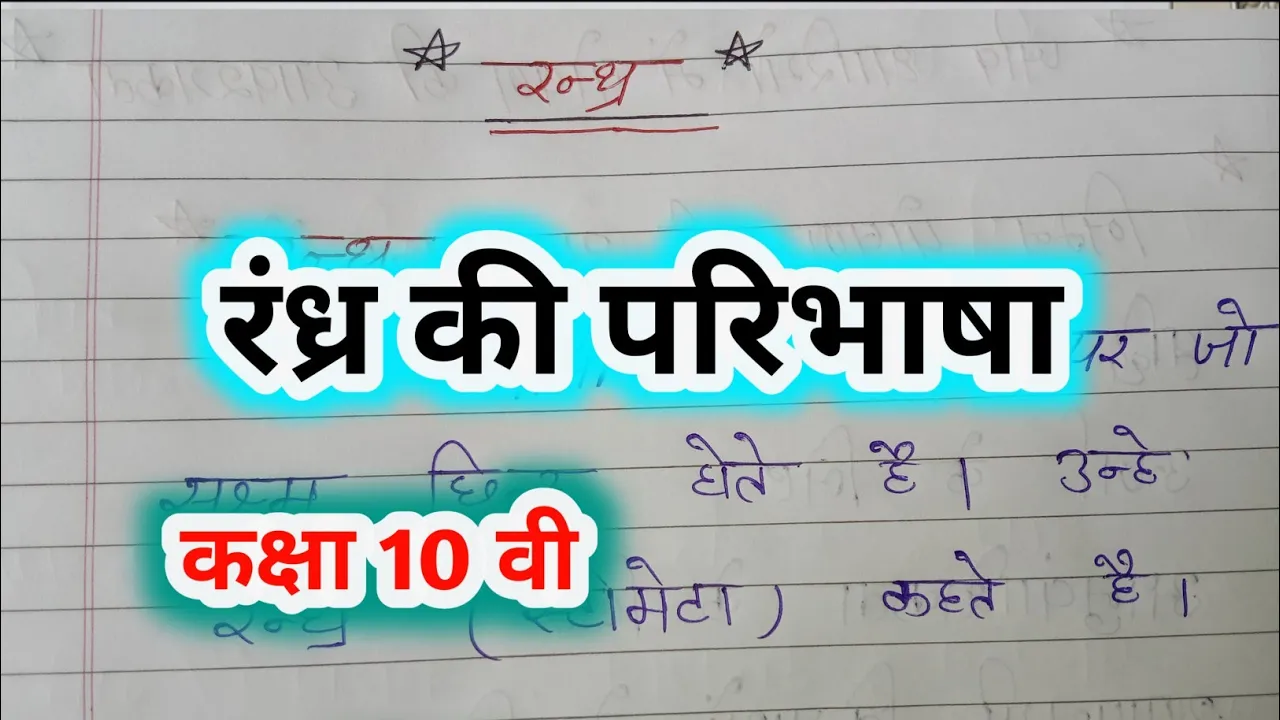 रन्ध्र
रंध्र की परिभाषा
पर जो
सूक्ष्म छिद्र होते है। उन्हे
कक्षा 10 वी
रन्ध्र (स्टोमेटा) कहते है।